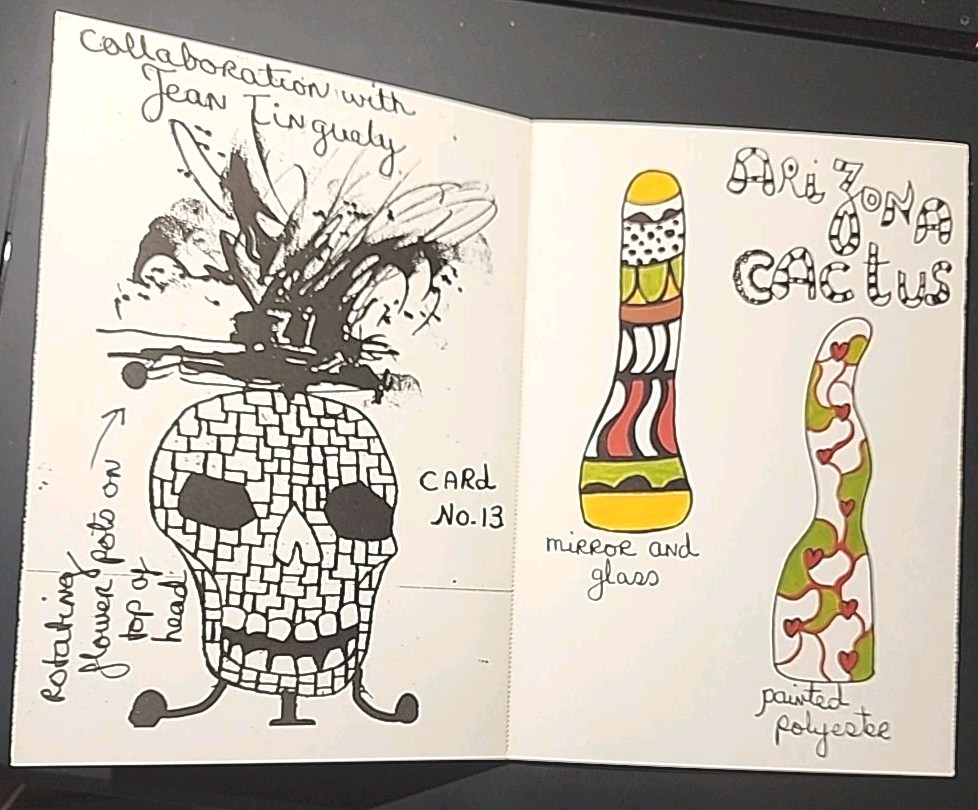 Collaboration with
Jean Tinguely
Rotating
flower pots on
top of
head
CARd
No. 13
ARiZONA
CACtUS
mirror and
glass
painted
polyester